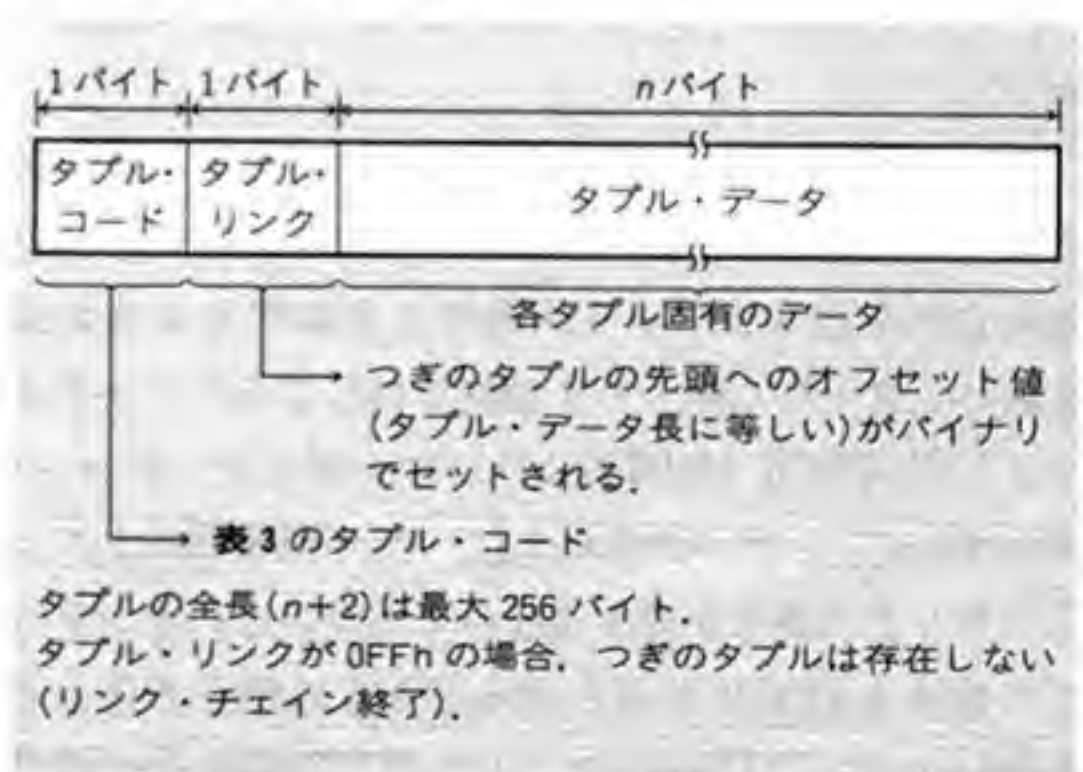 1バイト 1バイト nバイト
タプル・コード
タプル・リンク
タプル・データ
各タプル固有のデータ
つぎのタプルの先頭へのオフセット値
(タプル・データ長に等しい)がバイナリ
でセットされる.
表3のタプル・コード
タプルの全長(n+2)は最大 256 バイト.
タプル・リンクが 0FFh の場合, つぎのタプルは存在しない
(リンク・チェイン終了).